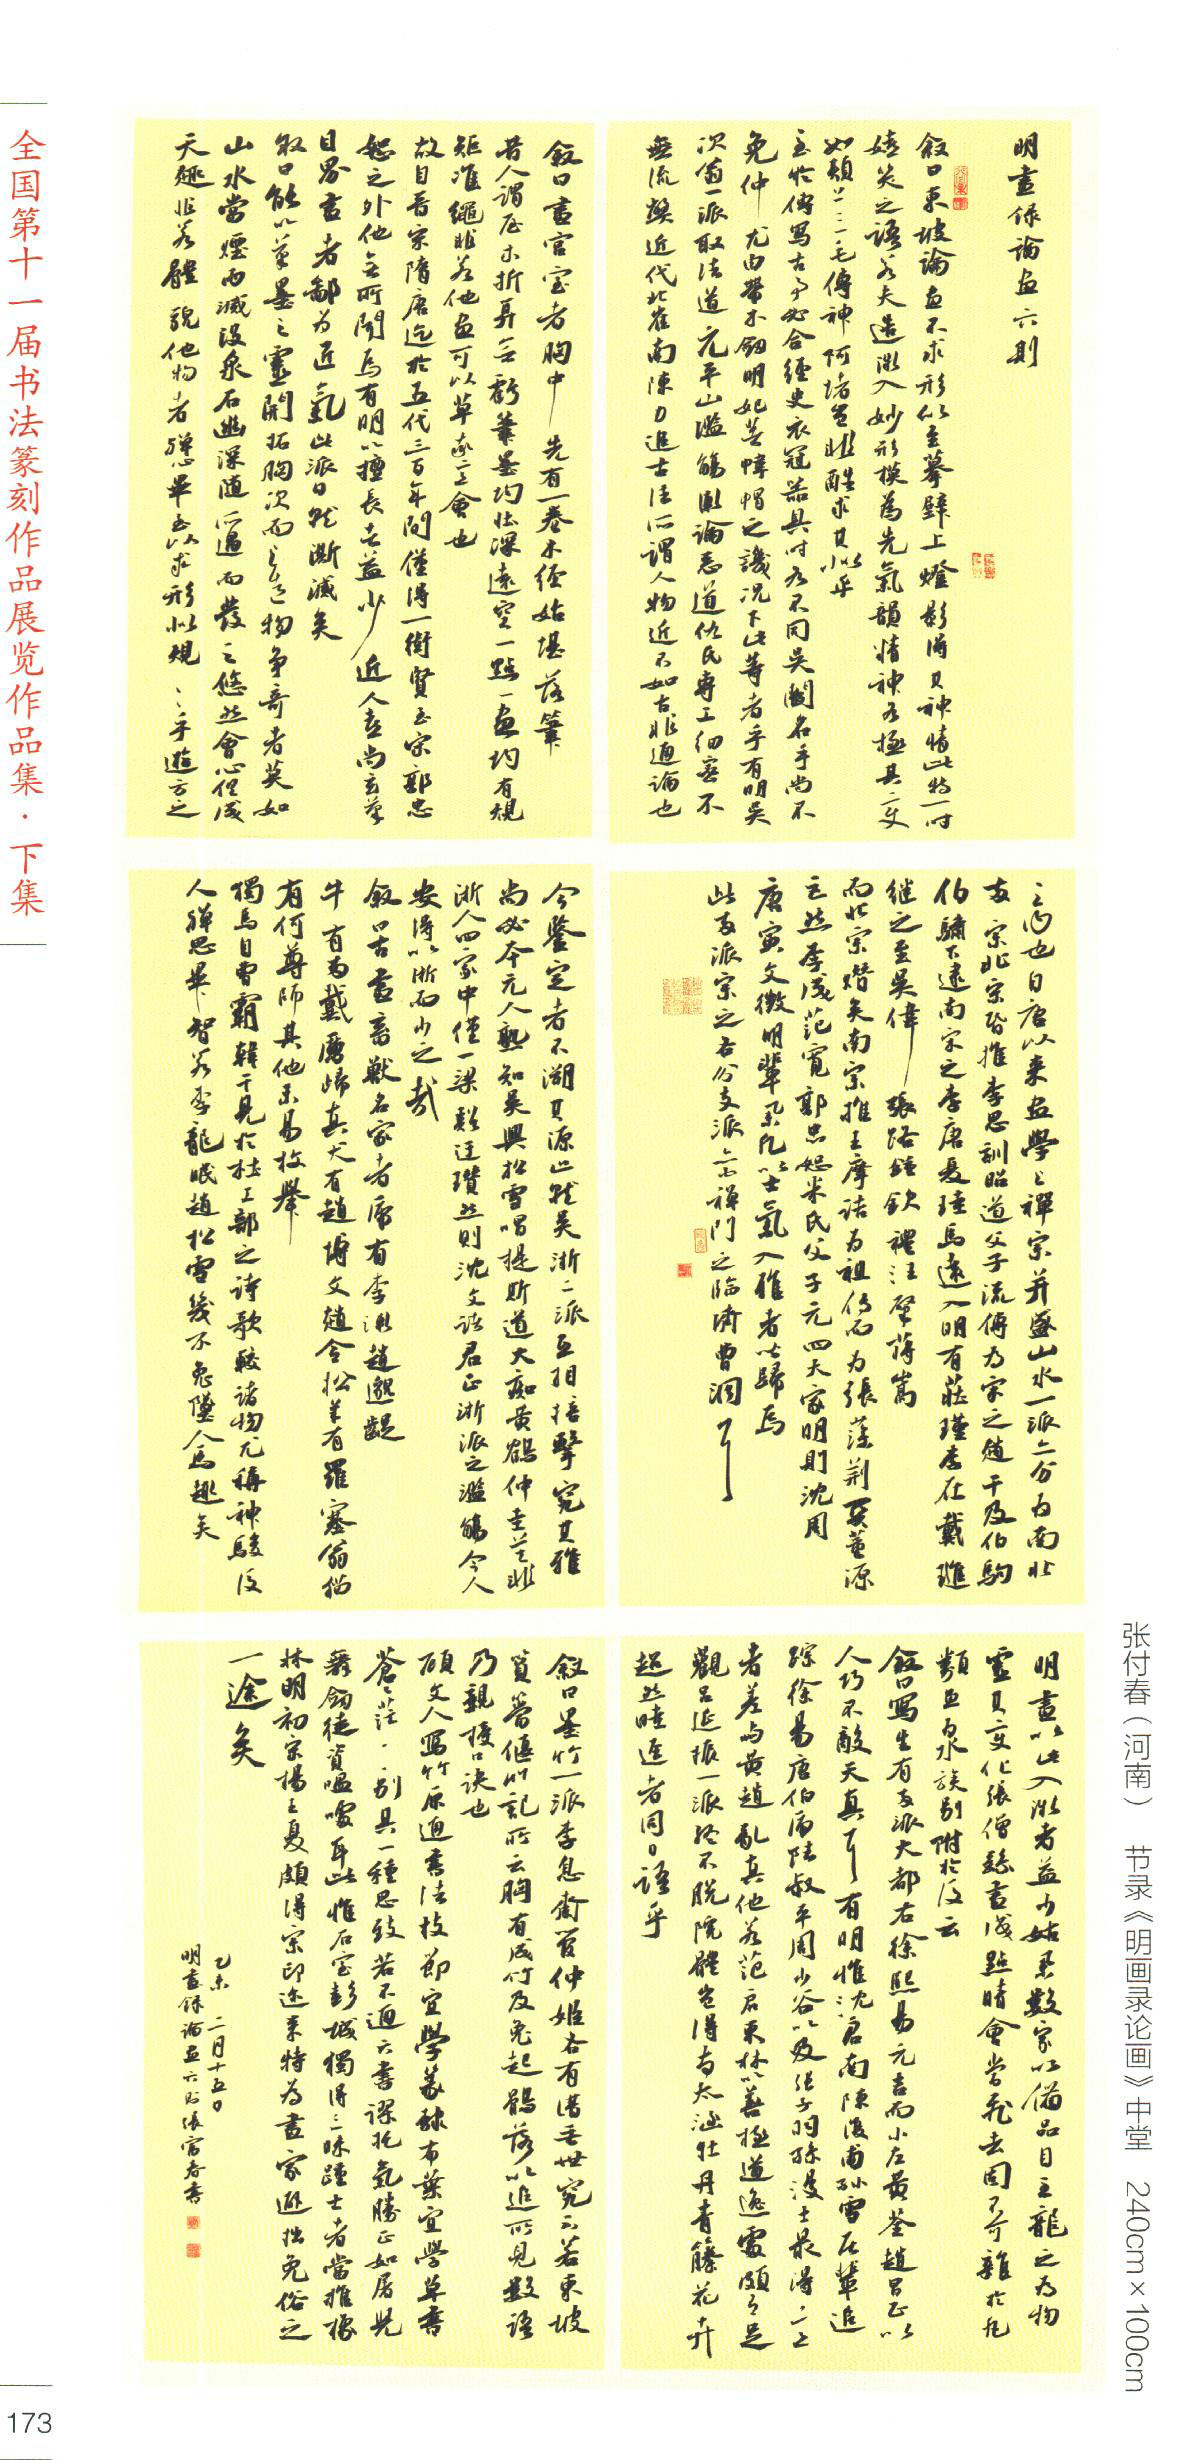 全国第十一届书法篆刻作品展览作品集·下集
明畫錄論畫六則
敘曰東坡論畫不求形似至摹壁上燈影得其神情此特一時
嬉笑之語若夫造微入妙形模為先氣韻精神各極其變
如頰上三毛傳神阿堵豈非酷求其似乎
至於傳寫古事必合經史衣冠器具時各不同吳閻名手尚不
免仲尤由帶木劍明妃菩幃帽之譏況下此等者乎有明吳
次翁一派取法道元平山濫觴漸論惡道仇氏專工細密不
無流弊近代北崔南陳力追古法所謂人物近不如古非通論也
敘曰畫宮室者胸中先有一卷木經始堪落筆
昔人謂屋木折算無虧筆墨均壯深遠空一點一畫均有規
矩准繩非若他畫可以草率意會也
故自晉宋隋唐迄於五代三百年間僅得一衛賢至宋郭忠
恕之外他無所聞焉有明以擅長者益少近人喜尚玄筆
目界畫者鄙為匠氣此派日就澌滅矣
敘曰能以筆墨之靈開拓胸次而與造物爭奇者莫如
山水當煙雨滅沒泉石幽深隨所遇而發之悠然會心俱成
天趣非若體貌他物者殫心畢智以求形似規規乎遊方之
之內也自唐以來畫學與禪宗並盛山水一派亦分為南北
兩宗北宗首推李思訓昭道父子流傳為宋之趙幹及伯駒
伯驌下逮南宋之李唐夏珪馬遠入明有莊瑾李在戴璡
繼之至吳偉張路鍾欽禮汪肇蔣嵩
而北宗熸矣南宗推王摩詰為祖傳而為張藻荊關董源
巨然李成范寬郭忠恕米氏父子元四大家明則沈周
唐寅文徵明輩舉凡以士氣入雅者皆歸焉
此兩派宗之各分支派亦禪門之臨濟曹洞耳
今鑒定者不溯其源止就吳浙二派互相掊擊究其雅
尚必本元人孰知吳興松雪唱提斯道大癡黃鶴仲圭莫非
浙人四家中僅一梁谿迂瓚然則沈文諸君正浙派之濫觴今人
安得以浙而少之哉
敘曰古畫畜獸名家者虎有李漸趙邈齪
牛有為戴嵩厲歸真犬有趙博文趙令松羊有羅塞翁貓
有何尊師其他未易枚舉
獨馬自曹霸韓幹見於杜工部之詩歌較諸物尤稱神駿後
人殫思畢智若李龍眠趙松雪幾不免墮入馬趣矣
明畫以此入微者益少姑舉數家以備品目至龍之為物
靈其變化張僧繇畫成點睛會當飛去固不可雜於凡
類並泉族別附於後云
敘曰寫生有兩派大都右徐熙易元吉而小左黃荃趙昌正以
人巧不敵天真耳有明惟沈啟南陳復甫孫雪居輩追
踪徐易唐伯虎陸叔平周少谷以及張子羽孫漫士最得二王
者差與黃趙亂真他若范啟東林以善極遒逸處頗足
觀呂廷振一派終不脫院體豈得與太涵牡丹青藤花卉
超然畦逕者同日語乎
敘曰墨竹一派李息齋管仲姬各有譜垂世究之若東坡
篔簹偃竹記所云胸有成竹及兔起鶻落以追所見數語
乃親授口訣也
碩文人寫竹原通書法枝節宜學篆隸布葉宜學草書
蒼蒼茫茫別具一種思致若不通六書謬托氣勝正如屠兒
舞劍徒資嗢噱耳此惟石室彭城獨得三昧踵士者當推檬
林明初宗楊王夏頗得宗印迹來特為畫家避拙免俗之
一途矣
乙未二月十五日
明畫錄論畫六則張富春書
张付春（河南）  节录《明画录论画》中堂  240cm×100cm
173